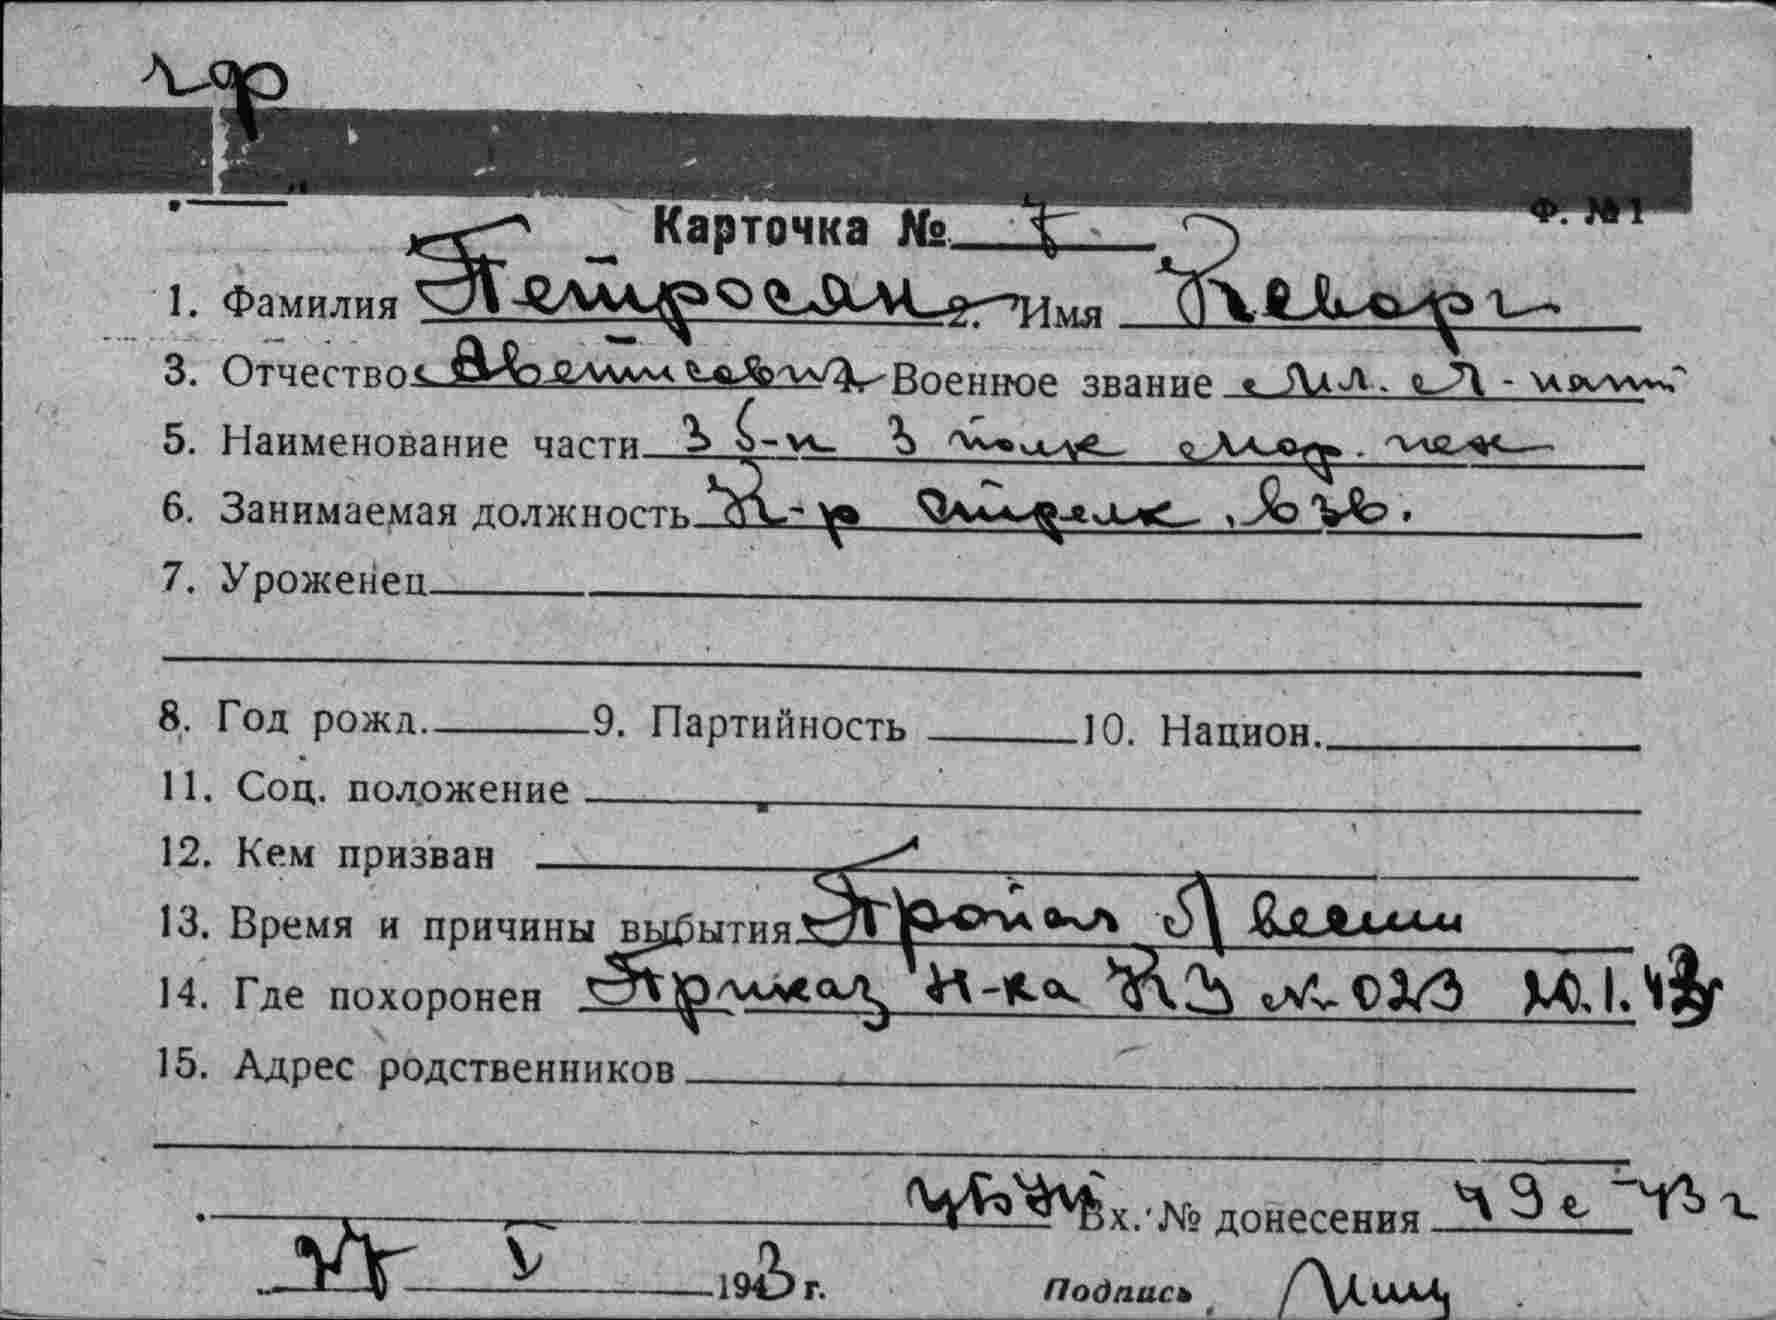 Ф. №1
Карточка № 7
1. Фамилия Петросян 2. Имя Кеворг
3. Отчество Аветисович 4. Военное звание мл. л-нант
5. Наименование части 3 б-н 3 полк мор. пех
6. Занимаемая должность К-р стрелк. взв.
7. Уроженец
8. Год рожд. 9. Партийность 10. Национ.
11. Соц. положение
12. Кем призван
13. Время и причины выбытия Пропал б/вести
14. Где похоронен Приказ н-ка КЗ № 023 20.1.43г
15. Адрес родственников
Вх. № донесения 49с-43г
V 1943 г. Подпись